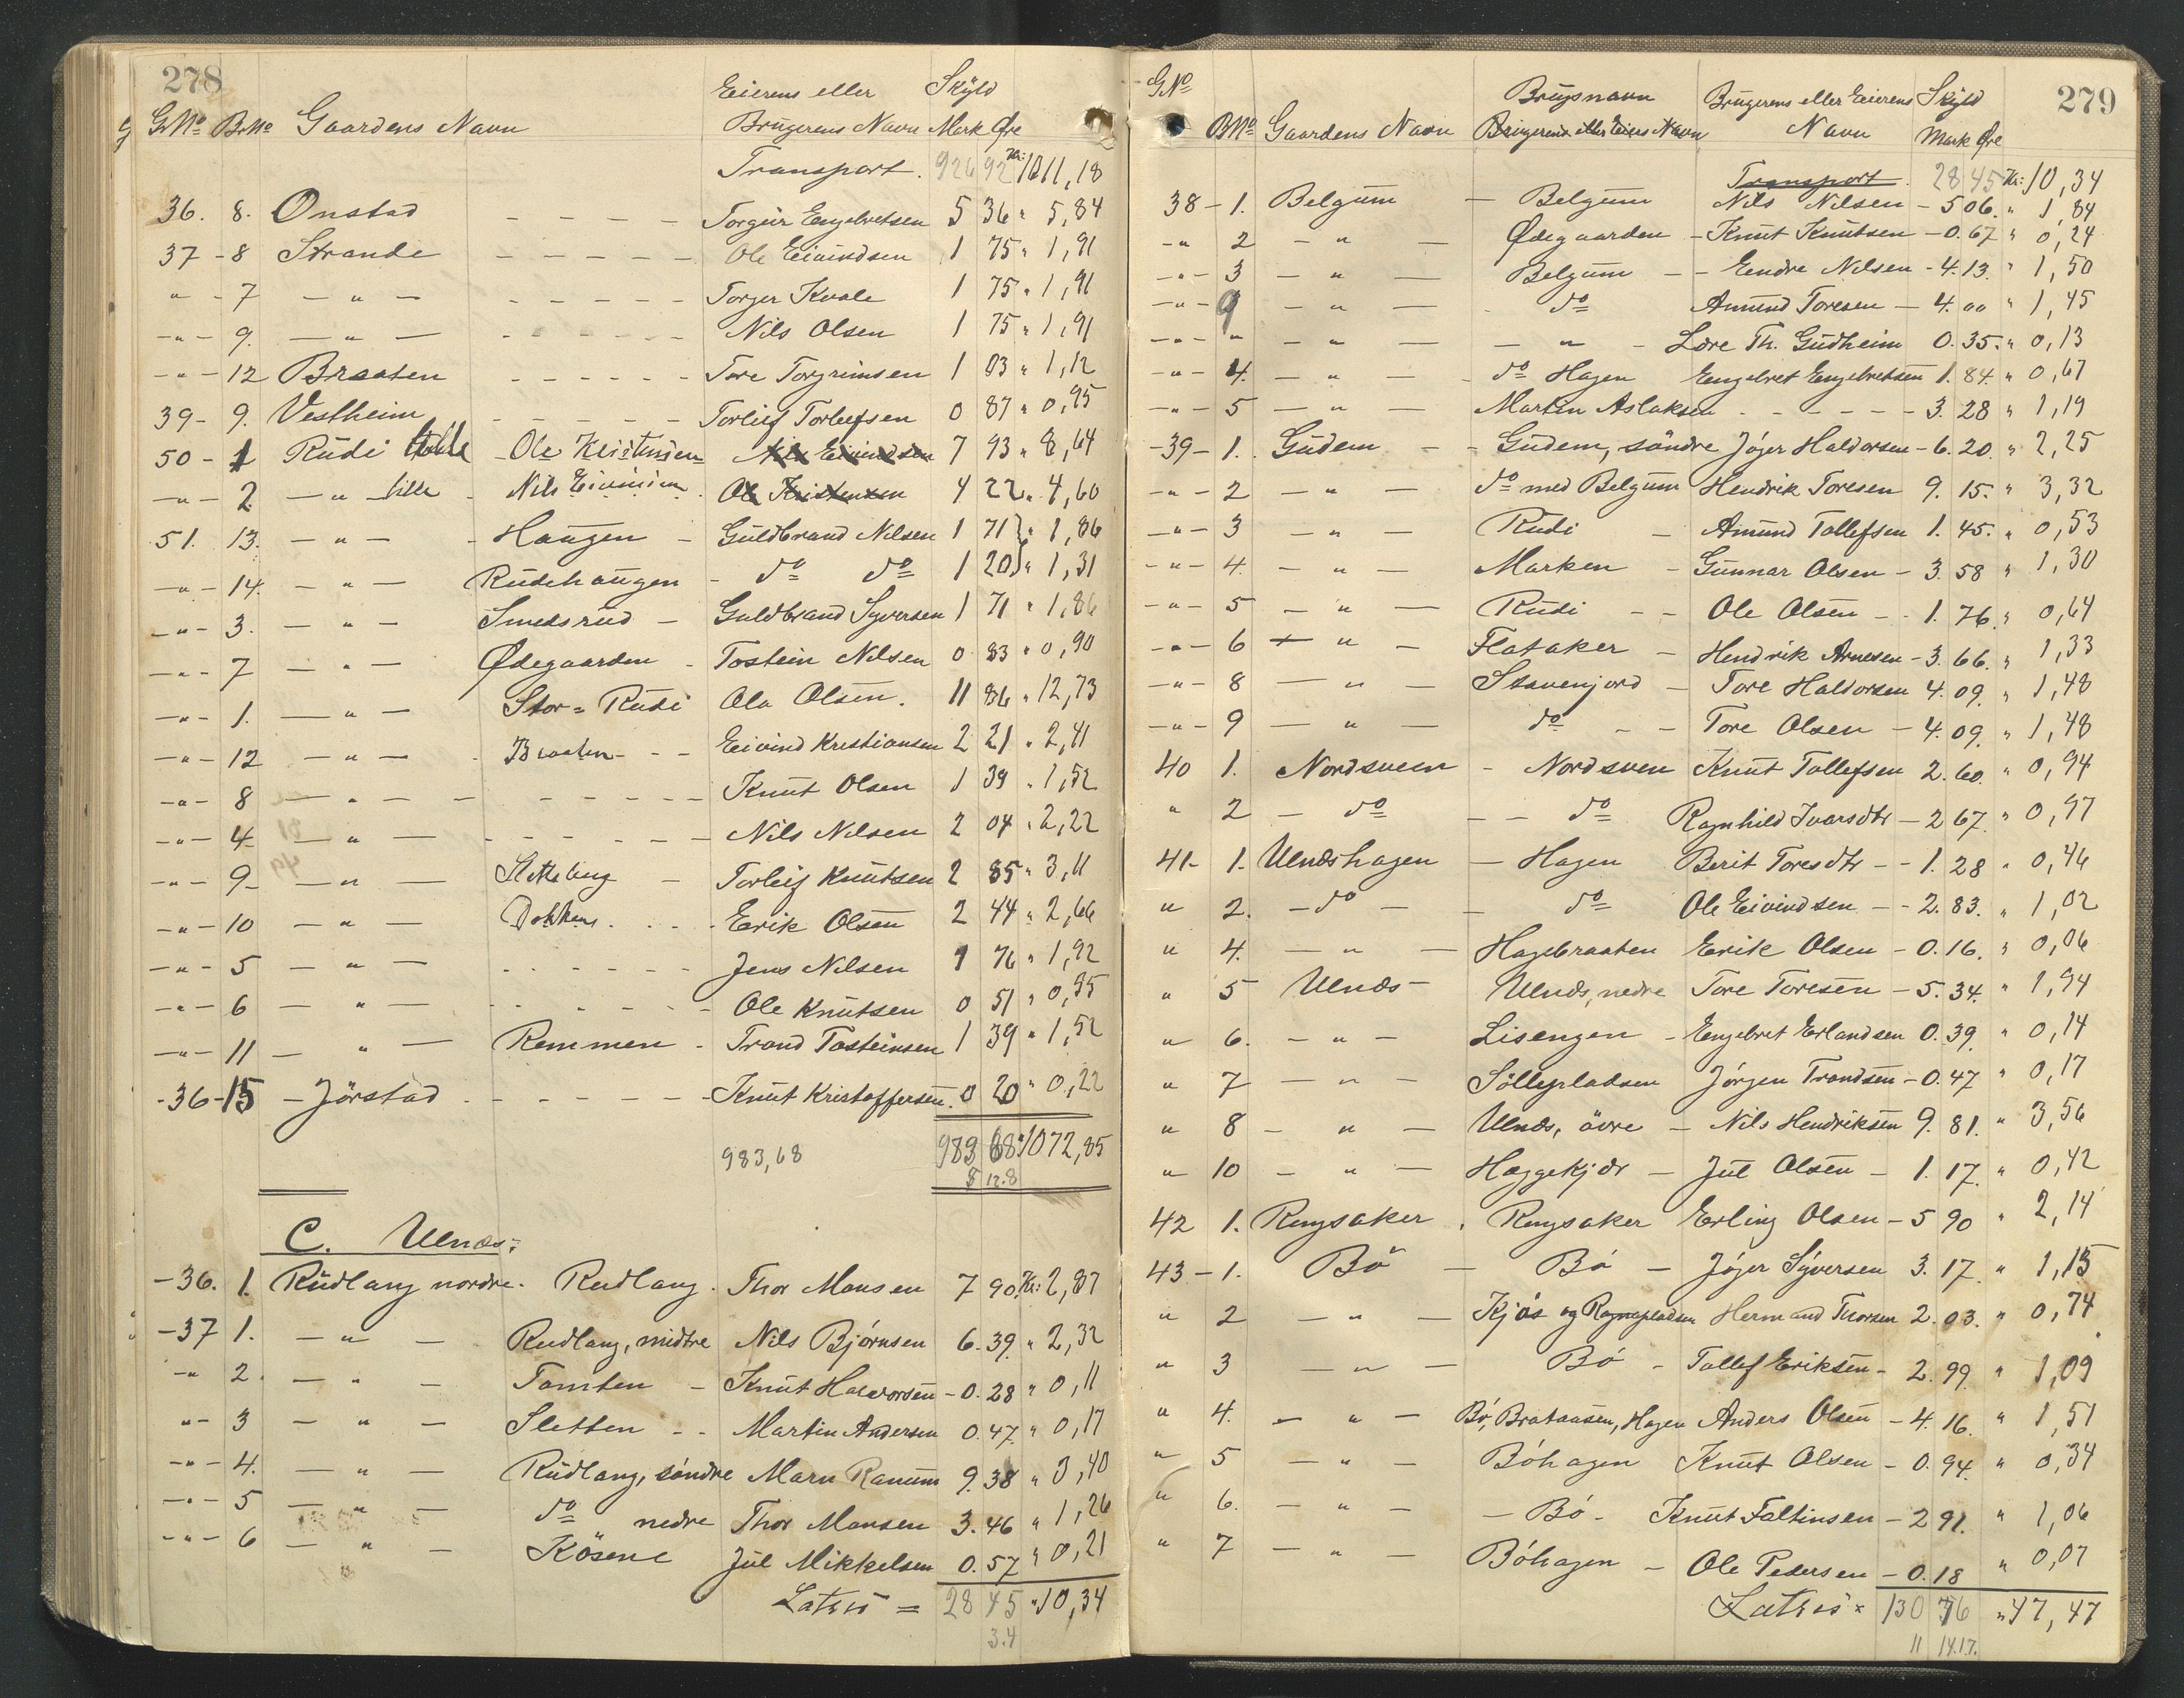 278
Eierens eller Skÿld
GrNo BrNo Gaardens Navn Brugerens Navn Mark Øre
Transport. 926 92 Kr: 1011,18
36. 8. Onstad - - - - Torgeir Engebretsen 5 36 " 5,84
37 - 8 Strande - - - - - Ole Eivindsen 1 75 " 1,91
" - 7 - " - - - - - - Torger Kvale 1 75 " 1,91
- " - 9. - " - - - - - - Nils Olsen 1 75 " 1,91
- " - 12 Braaten - - - - - Tore Torgrimsen 1 03 " 1,12
39 - 9. Vestheim - - - - Torlief Torleifsen 0 87 " 0,95
50 - 1 Rudi - Ole Kristensen Nils Eivindsen 7 93 " 8,64
- " - 2. - " - lille - Nils Eivindsen. Ole Kristensen 4 22 " 4,60
51. 13. - " - - Haugen - Guldbrand Nilsen 1 71 } " 1,86
- " - 14. - " - Rudehaugen - do do 1 20 } " 1,31
- " - 3. - " - Smedsrud - Guldbrand Syversen 1 71 " 1,86
- " - 7 - " - Ødegaarden - Tostein Nilsen 0 83 " 0,90
- " - 1. - " - Stor = Rudi Ola Olsen. 11 86 " 12,73
- " - 12 - " - Braaten - - Eivind Kristiansen 2 21 " 2,41
- " - 8 - " - - - - - - - Knut Olsen 1 39 " 1,52
- " - 4 - " - - - - - - - Nils Nilsen 2 04 " 2,22
- " - 9 - - " - Slettebeng - Torleif Knutsen 2 85 " 3,11
- " - 10 - " - Dokken . . . - Eerik Olsen 2 44 " 2,66
- " - 5 - " - - - - - - - Jens Nilsen 1 76 " 1,92
- " - 6 - " - - - - - - Ole Knutsen 0 51 " 0,55
- " - 11 - " - Remmen - Trond Tosteinsen 1 39 " 1,52
- 36 - 15 - Jörstad - - - - - - - Knut Kristoffersen. 0 20 " 0,22
983,68 983 68 " 1072,85
8 12.8
C. Ulnæs:
- 36. 1. Rudlang nordre. Rudlang. Thor Monsen 7 90. Kr: 2,87
- 37 1. - " - Rudlang, midtre Nils Bjørnsen 6. 39. " 2,32
- " 2. - " - Tomten - Knut Halvorsen - 0. 28 " 0,11
" - 3 - " - Sletten - - Martin Andersen 0. 47. " 0,17
- " - 4. - " - Rudlang, søndre Marn Ranum 9. 38 " 3,40
- " - 5 - " - do nedre Thor Monsen 3. 46 " 1,26
- " - 6 - " - Kösene Jul Mikkelsen 0. 57 " 0,21
Latris = 28 45 " 10,34
3.4
279
GNo Brugsnavn Brugerens eller Eierens Skÿld
BNo Gaardens Navn Brugerens eller Eiers Navn Navn Mark Øre
Transport. 28 45 Kr: 10,34
38 - 1. Belgum - Belgum Nils Nilsen - 5 06. " 1,84
- " 2 - " - Ødegaarden - Knut Knutsen - 0. 67 " 0,24
- " - 3 - " - Belgum - - Eendre Nilsen - 4. 13. " 1,50
- " - 9 - " - do Amund Toresen - 4. 00 " 1,45
- " - " - " - - " - Lore Th. Gudheim 0. 35. " 0,13
- " - 4. - " - - do Hagen Engebret Engebretsen 1. 84. " 0,67
- " - 5 - " - Martin Aslaksen - - - - - - 3. 28 " 1,19
- 39 - 1. Gudem - - Gudem, söndre Jøger Haldorsen - 6. 20. " 2,25
- " - 2 - " - do med Belgum Hendrik Toresen 9. 15. " 3,32
- " - 3 - " - Rudi - Amund Tollefsen 1. 45. " 0,53
- " - 4. - " - Marken - Gunnar Olsen - 3. 58 " 1,30
- " - 5 - " - Rudi - - Ole Olsen - - 1. 76. " 0,64
- " - 6 - " - Flataker - Hendrik Arnesen - 3. 66. " 1,33
- " - 8 - " - Stavenjord - Tore Haldorsen 4. 09. " 1,48
- " - 9 - " - do - - Tore Olsen - 4. 09. " 1,48
40 1. Nordsveen - Nordsven Knut Tollefsen 2. 60. " 0,94
" 2 - do - - do Ragnhild Ivarsdtr - 2 67. " 0,97
41 - 1. Ulnæshagen - Hagen Berit Toresdtr - - 1. 28 " 0,46
" 2. - do - - do Ole Eivindsen - - 2. 83. " 1,02
" 4. - " - Hagebraaten Eerik Olsen - 0. 16. " 0,06
" 5 Ulnæs - Ulnæs, nedre Tore Toresen - 5. 34. " 1,94
" 6. - " - Lisengen - Engebret Erlandsen 0. 39. " 0,14
" 7 - " - Söllepladsen Jørgen Trondsen - 0. 47 " 0,17
" 8 - " - Ulnæs, övre - Nils Hendriksen 9. 81. " 3,56
" 10 - " - Haggekjær - Jul Olsen - 1. 17. " 0,42
42 1. Ringsaker . Ringsaker Erling Olsen - 5 90 " 2,14
43 - 1. Bö - Bö - Jøger Sÿversen 3. 17. " 1,15
" 2 - " - Kjös og Rognepladsen Hermand Thorsen 2. 03. " 0,74
" 3 - " - Bö - Tollef Eriksen - 2. 99. " 1,09
" 4. - " - Bö, Brataasen, Hagen Anders Olsen - 4. 16. " 1,51
" 5 - " - Böhagen Knut Olsen - 0. 94. " 0,34
" 6. - " - - Bö - Knut Faltinsen - 2 91. " 1,06
" 7 - " - Böhagen - Ole Pedersen - 0. 18 " 0,07
Latris 130 76 " 47,47
11 14.17.